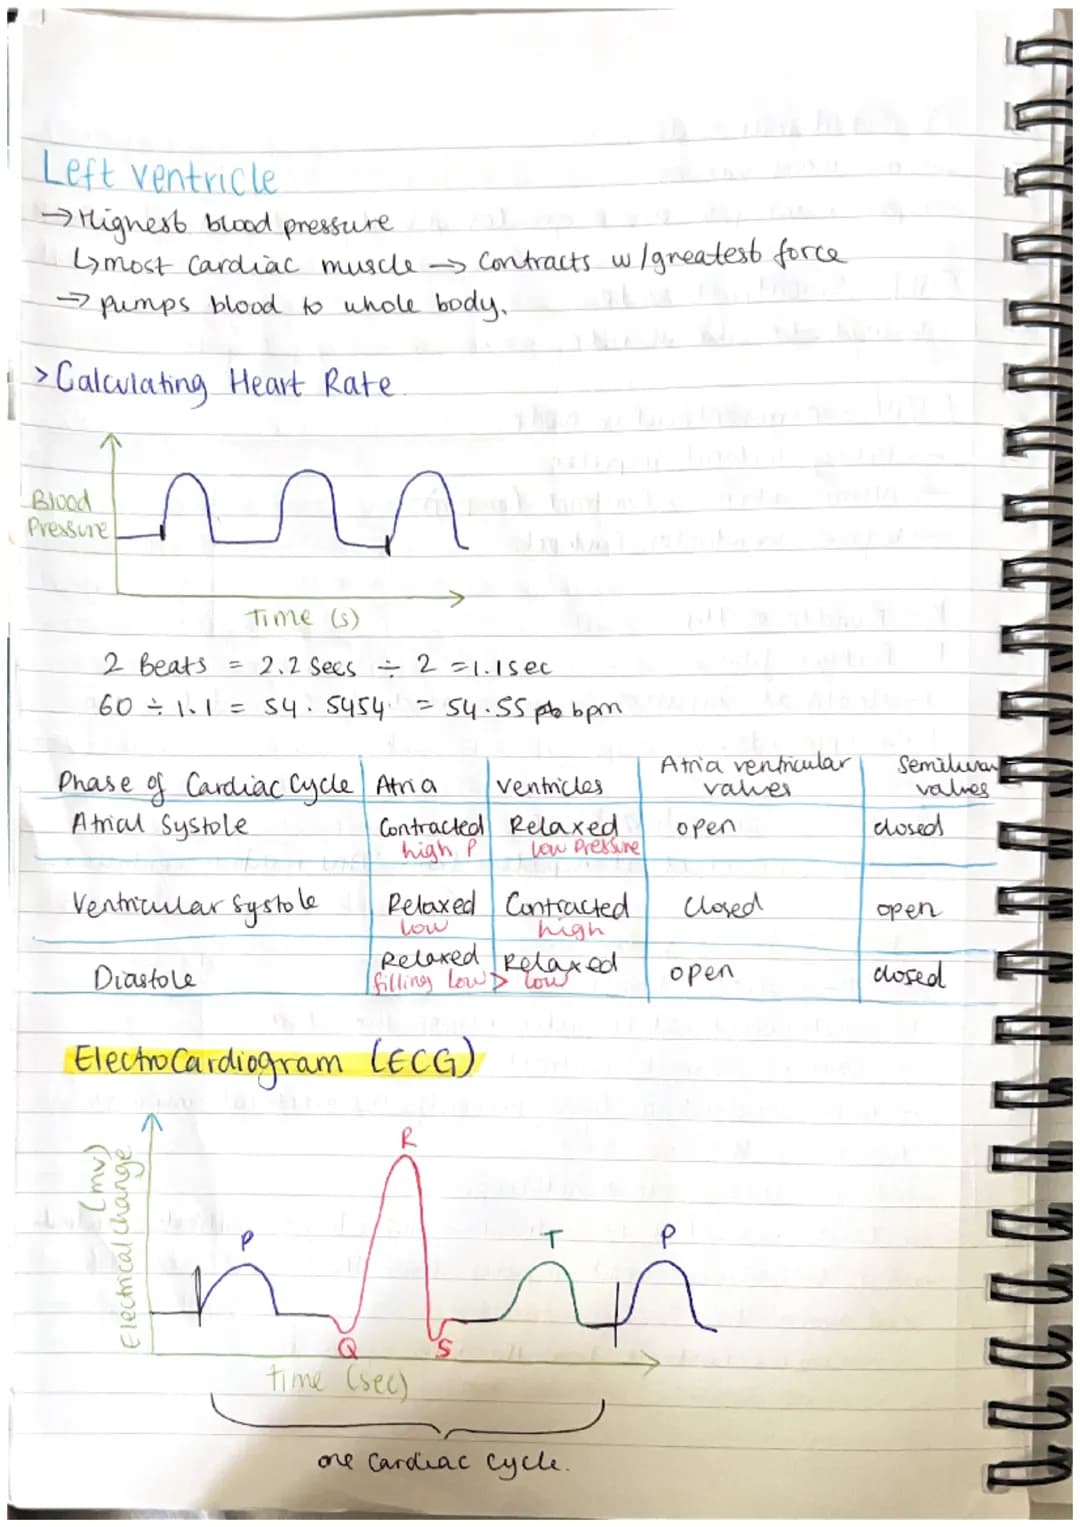 Left ventricle
→ Highest blood pressure
↳ most cardiac muscle → Contracts w/greatest force
→ pumps blood to whole body.
> Calculating Heart Rate
Blood
Pressure
Time (s)
2 Beats = 2.2 Secs ÷ 2 = 1.1 sec
60 ÷ 1.1 = 54.5454. = 54.55 bpm
Phase of Cardiac Cycle | Atria | Ventricles | Atria ventricular valves | Semilunar valves
Atrial Systole | Contracted high P | Relaxed Low Pressure | open | closed
Ventricular Systole | Relaxed low | Contracted high | Closed | open
Diastole | Relaxed filling low > | Relaxed low | open | closed
ElectroCardiogram (ECG)
Electrical change (mv)
P
R
T
P
Q
S
time (sec)
one cardiac cycle.